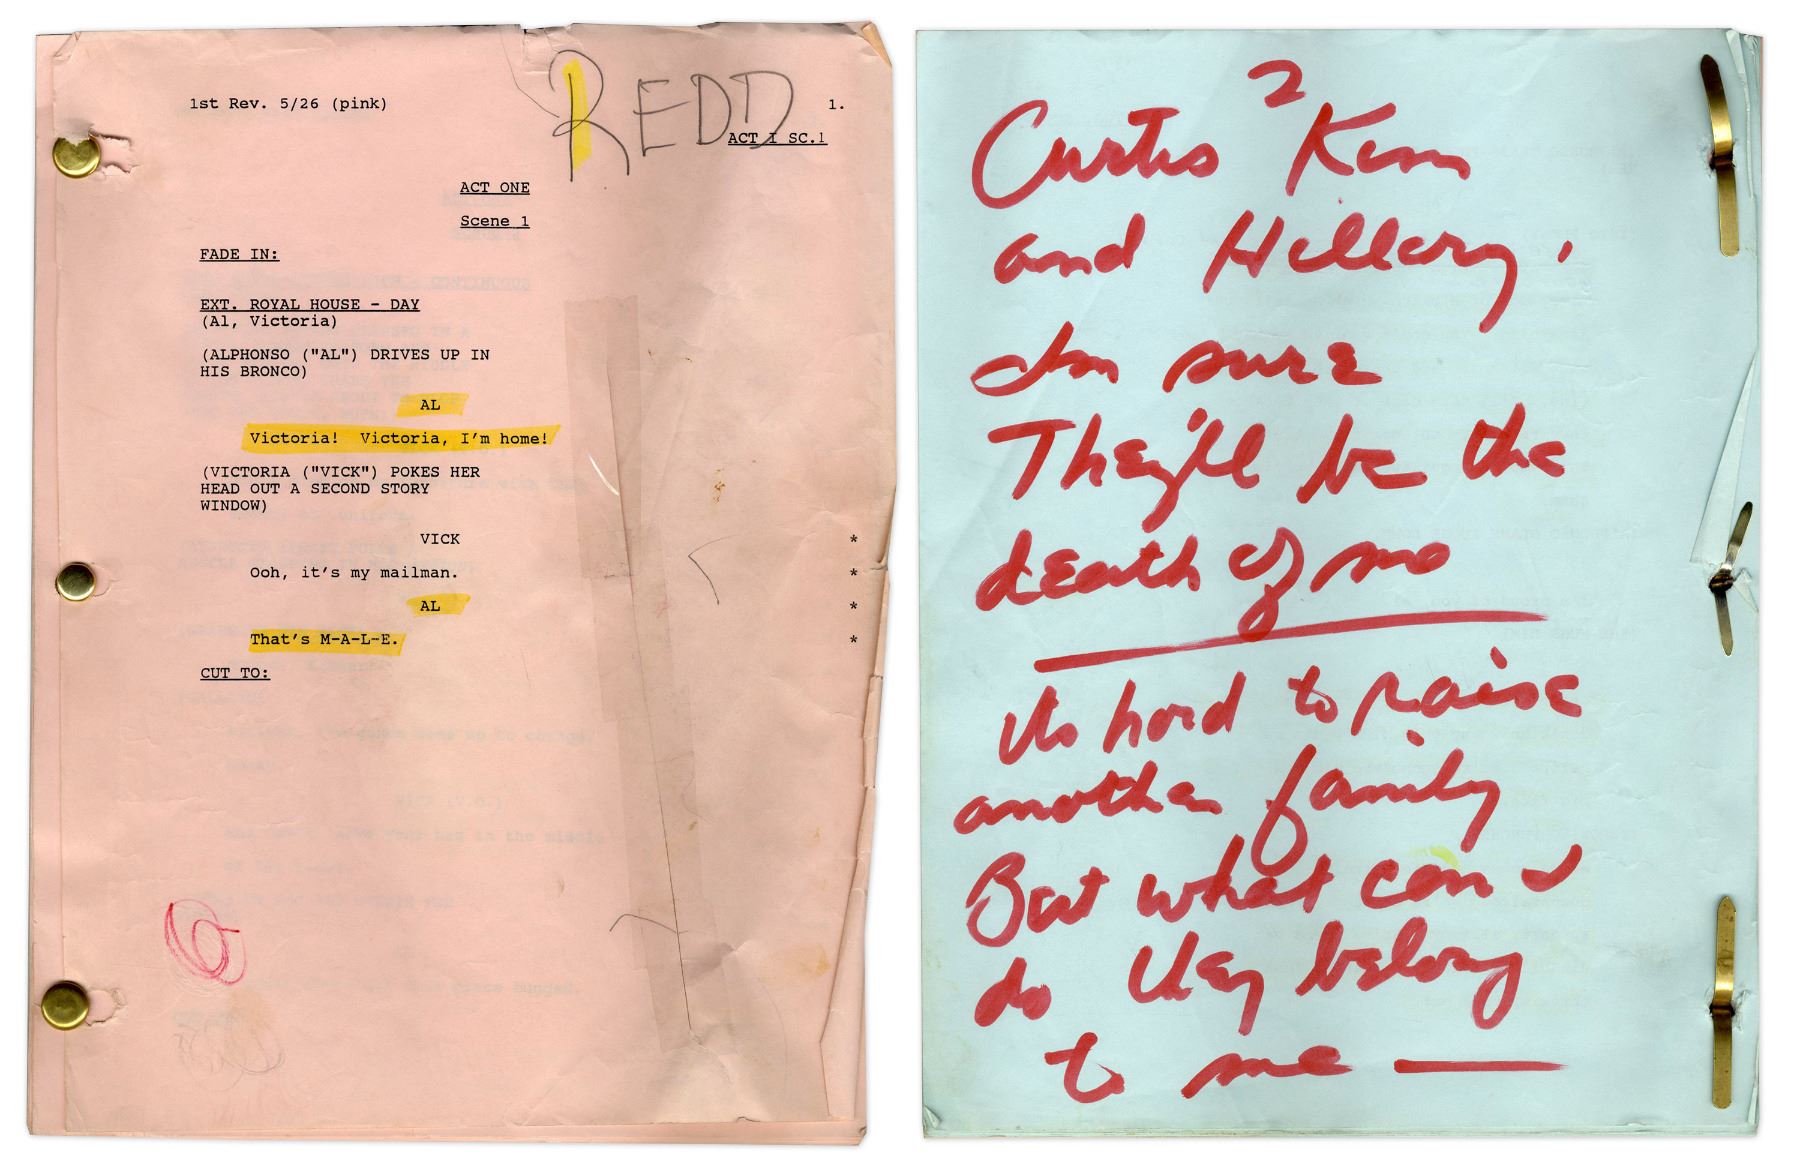 REDD
1st Rev. 5/26 (pink)
1.
ACT I SC.1
ACT ONE
Scene 1
FADE IN:
EXT. ROYAL HOUSE - DAY
(Al, Victoria)
(ALPHONSO ("AL") DRIVES UP IN
HIS BRONCO)
AL
Victoria! Victoria, I'm home!
(VICTORIA ("VICK") POKES HER
HEAD OUT A SECOND STORY
WINDOW)
VICK *
Ooh, it's my mailman. *
AL *
That's M-A-L-E. *
CUT TO:
2
Curtis Kim
and Hillery,
Im sure
They'll be the
death of me
Its hard to raise
another family
But what can I
do they belong
to me —